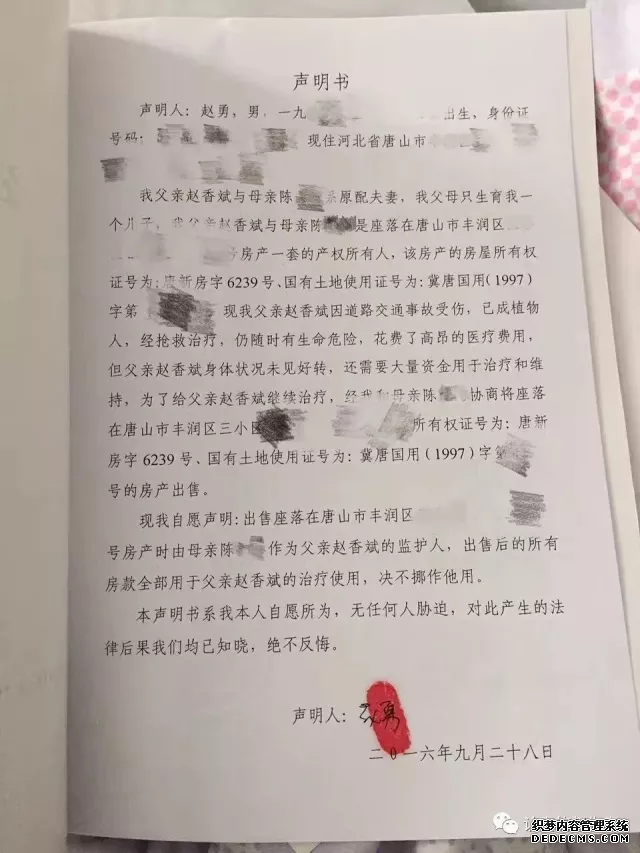 声明书
声明人：赵勇，男，一九 出生，身份证
号码： 现住河北省唐山市
我父亲赵香斌与母亲陈 系原配夫妻，我父母只生育我一
个儿子，我父亲赵香斌与母亲陈 是座落在唐山市丰润区
号房产一套的产权所有人，该房产的房屋所有权
证号为：唐新房字 6239 号、国有土地使用证号为：冀唐国用（1997）
字第 现我父亲赵香斌因道路交通事故受伤，已成植物
人，经抢救治疗，仍随时有生命危险，花费了高昂的医疗费用，
但父亲赵香斌身体状况未见好转，还需要大量资金用于治疗和维
持，为了给父亲赵香斌继续治疗，经我和母亲陈 协商将座落
在唐山市丰润区三小区 所有权证号为：唐新
房字 6239 号、国有土地使用证号为：冀唐国用（1997）字第
号的房产出售。
现我自愿声明：出售座落在唐山市丰润区
号房产时由母亲陈 作为父亲赵香斌的监护人，出售后的所有
房款全部用于父亲赵香斌的治疗使用，决不挪作他用。
本声明书系我本人自愿所为，无任何人胁迫，对此产生的法
律后果我们均已知晓，绝不反悔。
声明人：赵勇
二〇一六年九月二十八日
织梦内容管理系统
DEDECMS.COM